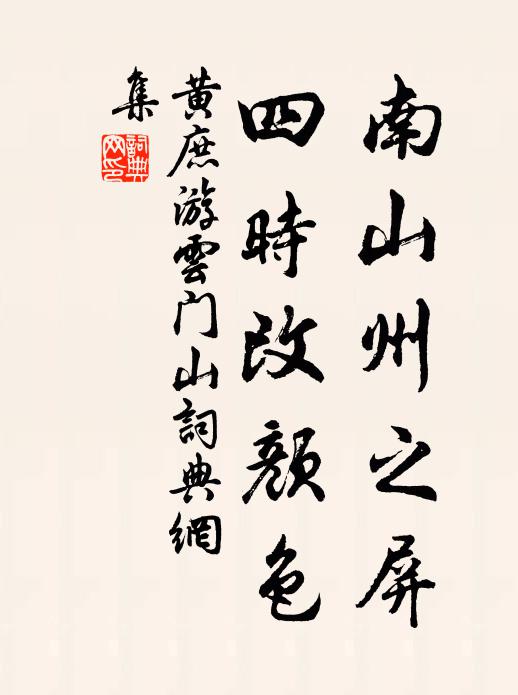 南山州之屏
四時改顔色
黄庶游雲門山詞典網
集
詞典網印